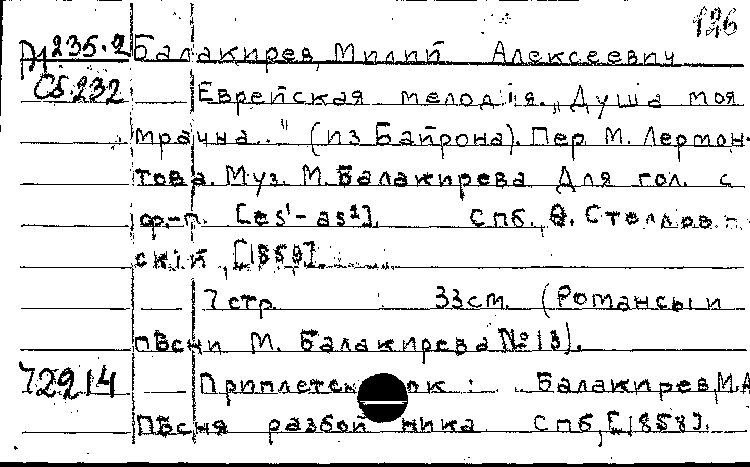 126
Д1 235.2 Балакирев, Милий Алексеевич
Сб.232 Еврейская мелодія. „Душа моя
мрачна.." (из Байрона). Пер. М. Лермон-
това. Муз. М. Балакирева Для гол. с
ф.-п. [es¹-as²]. Спб., Ѳ. Стеллов-
скій, [1859].
7 стр. 33см. (Романсы и
пѣсни М. Балакирева №13).
72914 Балакирев, М.А
Пѣсня разбойника Спб, [1858].